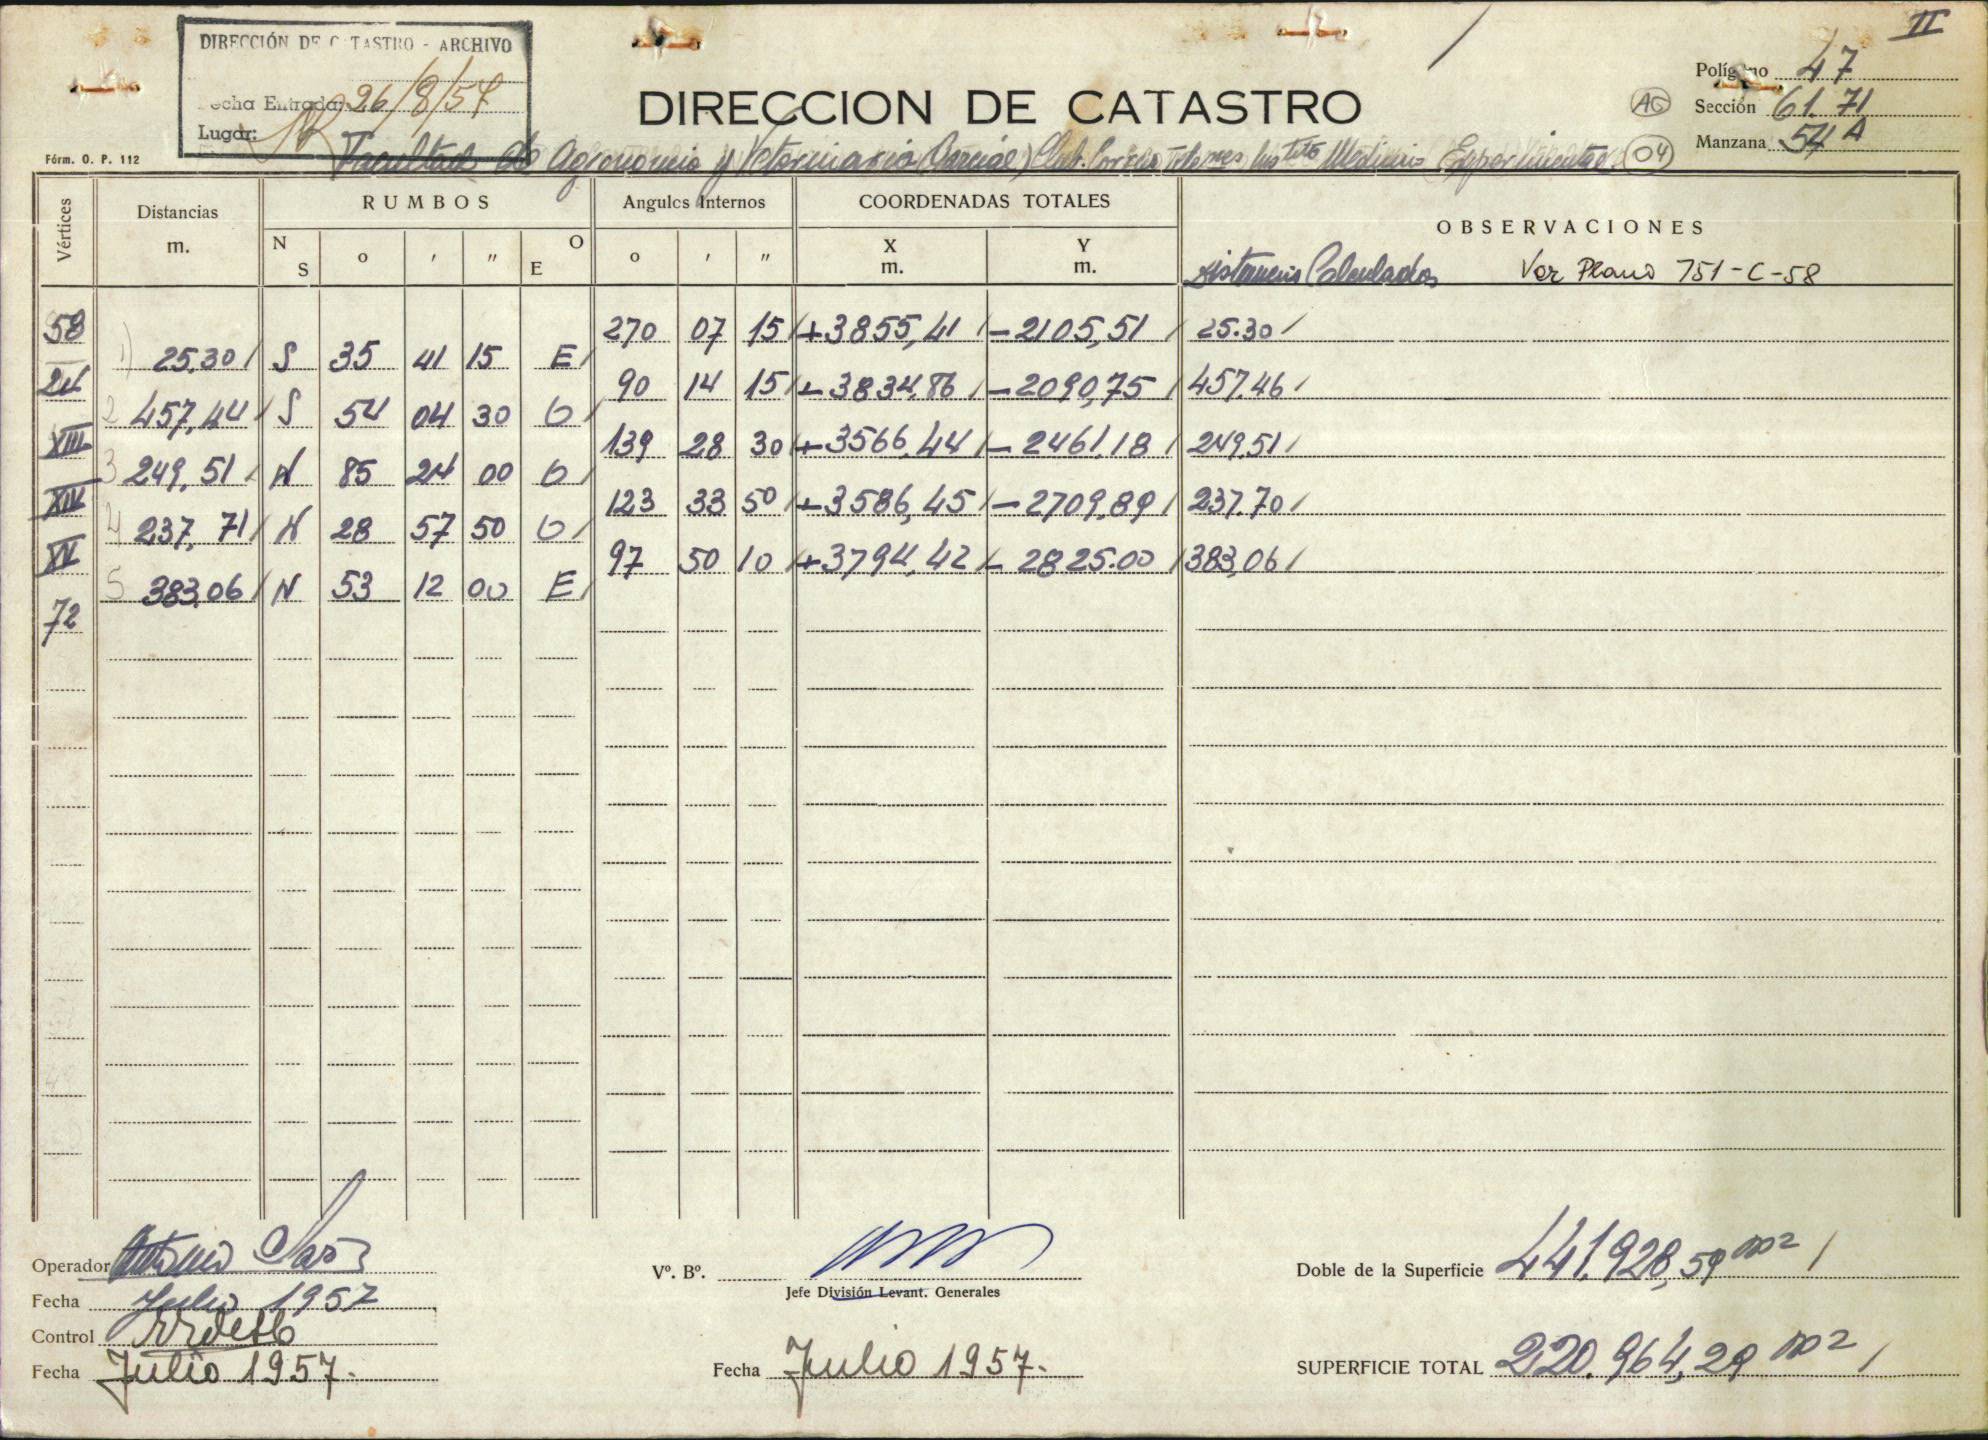 II
DIRECCIÓN DE CATASTRO - ARCHIVO
Fecha Entrada: 26/8/57
Lugar:
DIRECCION DE CATASTRO
Polígono 47
AG Sección 61.71
Manzana 54 A
04
Fórm. O. P. 112
Facultad de Agronomia y Veterinaria (Parcial) Club. Correo Telones Instto Medicina Experimental
Vértices Distancias m. RUMBOS Angulos Internos COORDENADAS TOTALES OBSERVACIONES
N S o ' " O E o ' " X m. Y m.
Distancias Calculadas Ver Plano 751-C-58
58 270 07 15 +3855,41 -2105,51 25.30
1) 25.30 S 35 41 15 E
24 90 14 15 +3834,86 -2090,75 457.46
2 457,44 S 54 04 30 O
XIII 139 28 30 +3566,44 -2461,18 249,51
3 249,51 N 85 24 00 O
XIV 123 33 50 +3586,45 -2709,89 237.70
4 237,71 N 28 57 50 O
XV 97 50 10 +3794,42 -2825.00 383,06
5 383,06 N 53 12 00 E
72
Operador Antonio
Fecha Julio 1957
Control
Fecha Julio 1957.
Vº. Bº.
Jefe División Levant. Generales
Fecha Julio 1957.
Doble de la Superficie 441.928,59 m2
SUPERFICIE TOTAL 220.964,29 m2